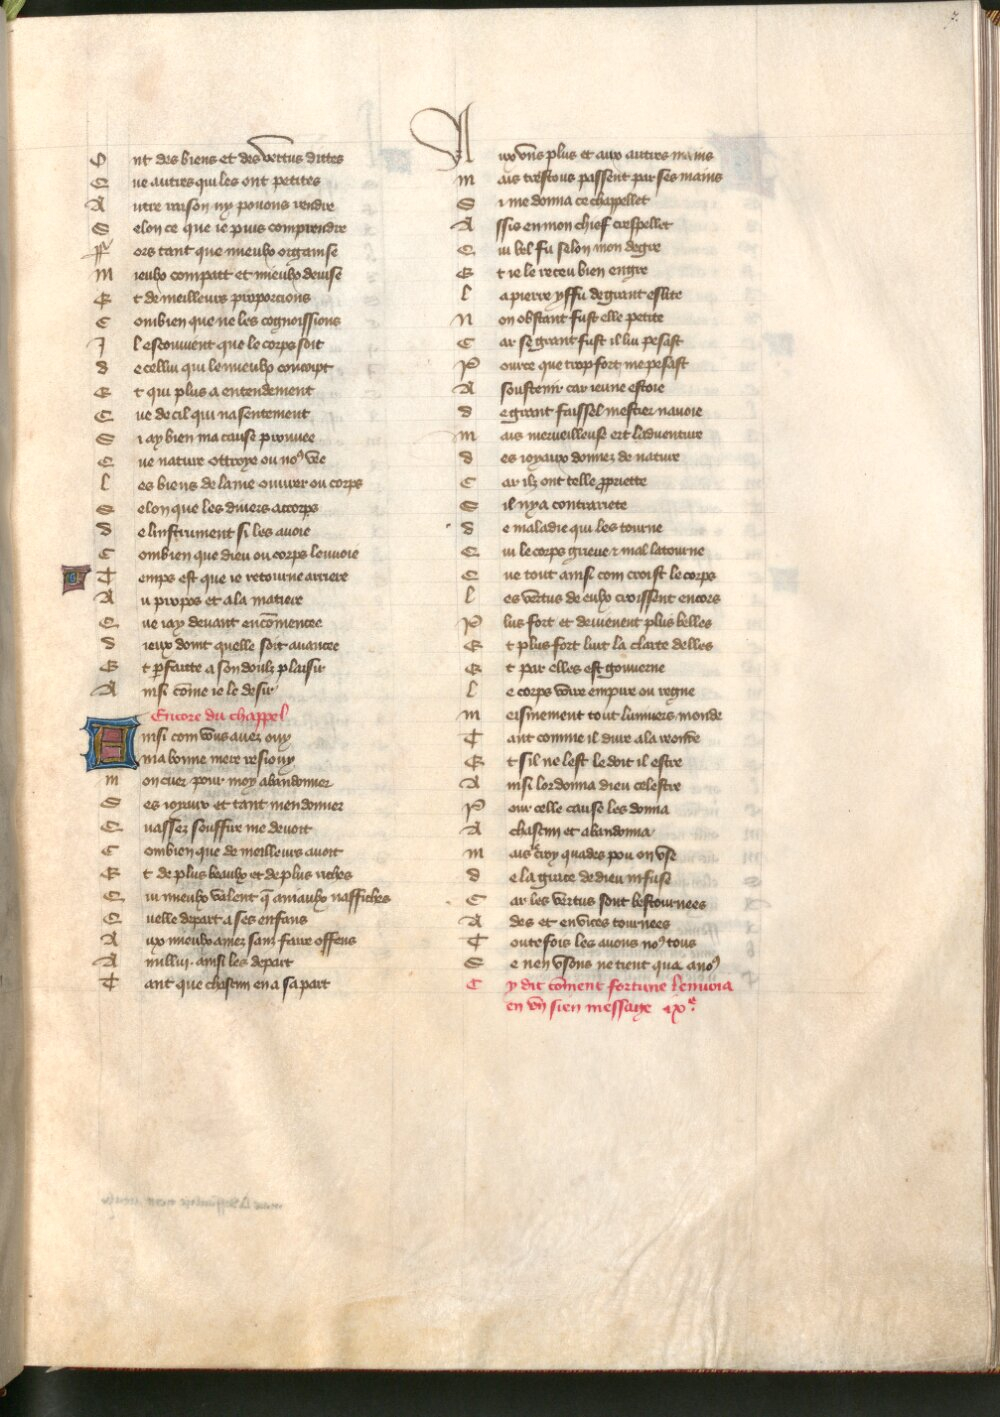 7.
O nt des biens et des vertus dittes
Q ue autres qui les ont petites
A utre raison ny pouons rendre
S elon ce que ie puis comprendre
F ors tant que mieulx organise
M ieulx compact et mieulx deuise
E t de meilleurs proporcions
C ombien que ne les cognoissions
J l escouuient que le corps soit
D e cellui qui le mieulx concoipt
E t qui plus a entendement
Q ue de cil qui na sentement
S i ay bien ma cause prouuee
Q ue nature ottroye ou noꝰ vee
L es biens de lame ouurer ou corps
S elon que les diuers accorps
D e linstrument si les auoie
C ombien que dieu ou corps lenuoie
T emps est que ie retourne arriere
A u propos et a la matiere
Q ue iay deuant encōmencee
D ieux doint quelle soit auancee
E t p̱faitte a son doulz plaisir
A insi cōme ie le desir
Encore du chappel
A insi com vous auez ouy
ma bonne mere resiouy
M on cuer pour moy abandonner
S es ioyaux et tant men donner
Q uassez souffire me deuoit
C ombien que de meilleurs auoit
E t de plus beaulx et de plus riches
Q ui mieulx valent q̄ aniaulx naffiches
Q uelle depart a ses enfans
A ux mieulx amez sans faire offens
A nullui. ainsi les depart
T ant que chascun en a sa part
A ux vns plus et aux autres mains
M ais trestous passent par ses mains
S i me donna ce chappellet
A ssis en mon chief crespellet
Q ui bel fu selon mon degre
E t ie le receu bien en gre
L a pierre yssu de grant eslite
N on obstant fust elle petite
C ar se grant fust il lui pesast
P ource que trop fort me pesast
A soustenir car ieune estoie
D e grant faissel mestier nauoie
M ais merueilleuse ert laduenture
D es ioyaux donnez de nature
C ar ilz ont telle ꝓpriette
S il ny a contrariete
D e maladie qui les tourne
Q ui le corps grieue ⁊ mal latourne
Q ue tout ainsi com croist le corps
L es vertus de eulx croissent encors
P lus fort et deuienent plus belles
E t plus fort luit la clarte delles
E t par elles est gouuerne
L e corps voire empire ou regne
M eismement tout luniuers monde
T ant comme il dure a la reonde
E t sil ne lest le doit il estre
A insi lordonna dieu celestre
P our celle cause les donna
A chascun et abandonna
M ais croy quades pou on vse
D e la grace de dieu infuse
C ar les vertus sont bestournees
A des et en vices tournees
T outefois les auons noꝰ tous
S e nen vsons ne tient qua anoꝰ
C y dit cōment fortune lenuoia
en vn sien message ixᵉ.